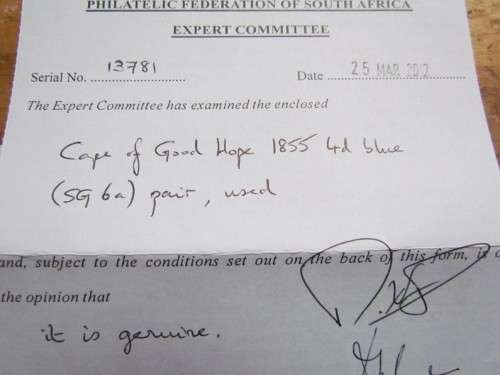 PHILATELIC FEDERATION OF SOUTH AFRICA
EXPERT COMMITTEE
Serial No. 13781 Date 25 MAR 2012
The Expert Committee has examined the enclosed
Cape of Good Hope 1855 4d blue
(SG 6a) pair, used
and, subject to the conditions set out on the back of this form, is
the opinion that
it is genuine.